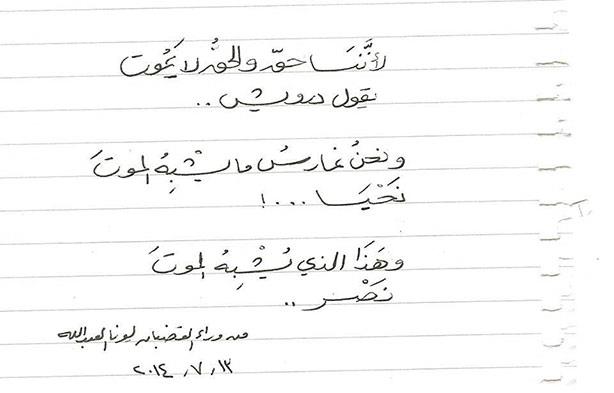 لأنَّنَا حقّ والحقُّ لا يَمُوت
يقول درويش ..
ونحنُ نمارسُ ما يُشْبِهُ الموتَ
نَحْيَا ...!
وهَذَا الذي يُشْبِهُ الموتَ
نَصْر ..
من وراء القضبان لونا العبدالله
٢٠١٤/٧/١٣